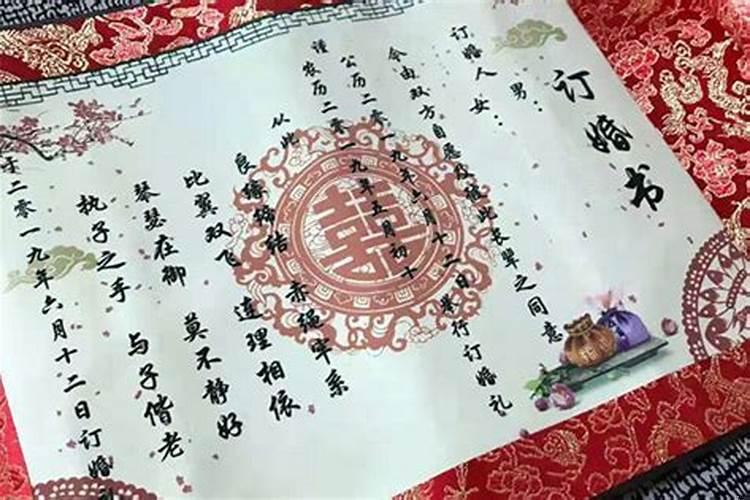 订婚书
订婚人 男：
女：
今由双方自愿及 彼此长辈之同意
谨 公历二零一九年六月十二日举行订婚礼
农历二零一九年五月初十
从此
良缘缔结 赤绳牢系
比翼双飞 连理相依
琴瑟在御 莫不静好
执子之手 与子偕老
于二零一九年六月十二日订婚